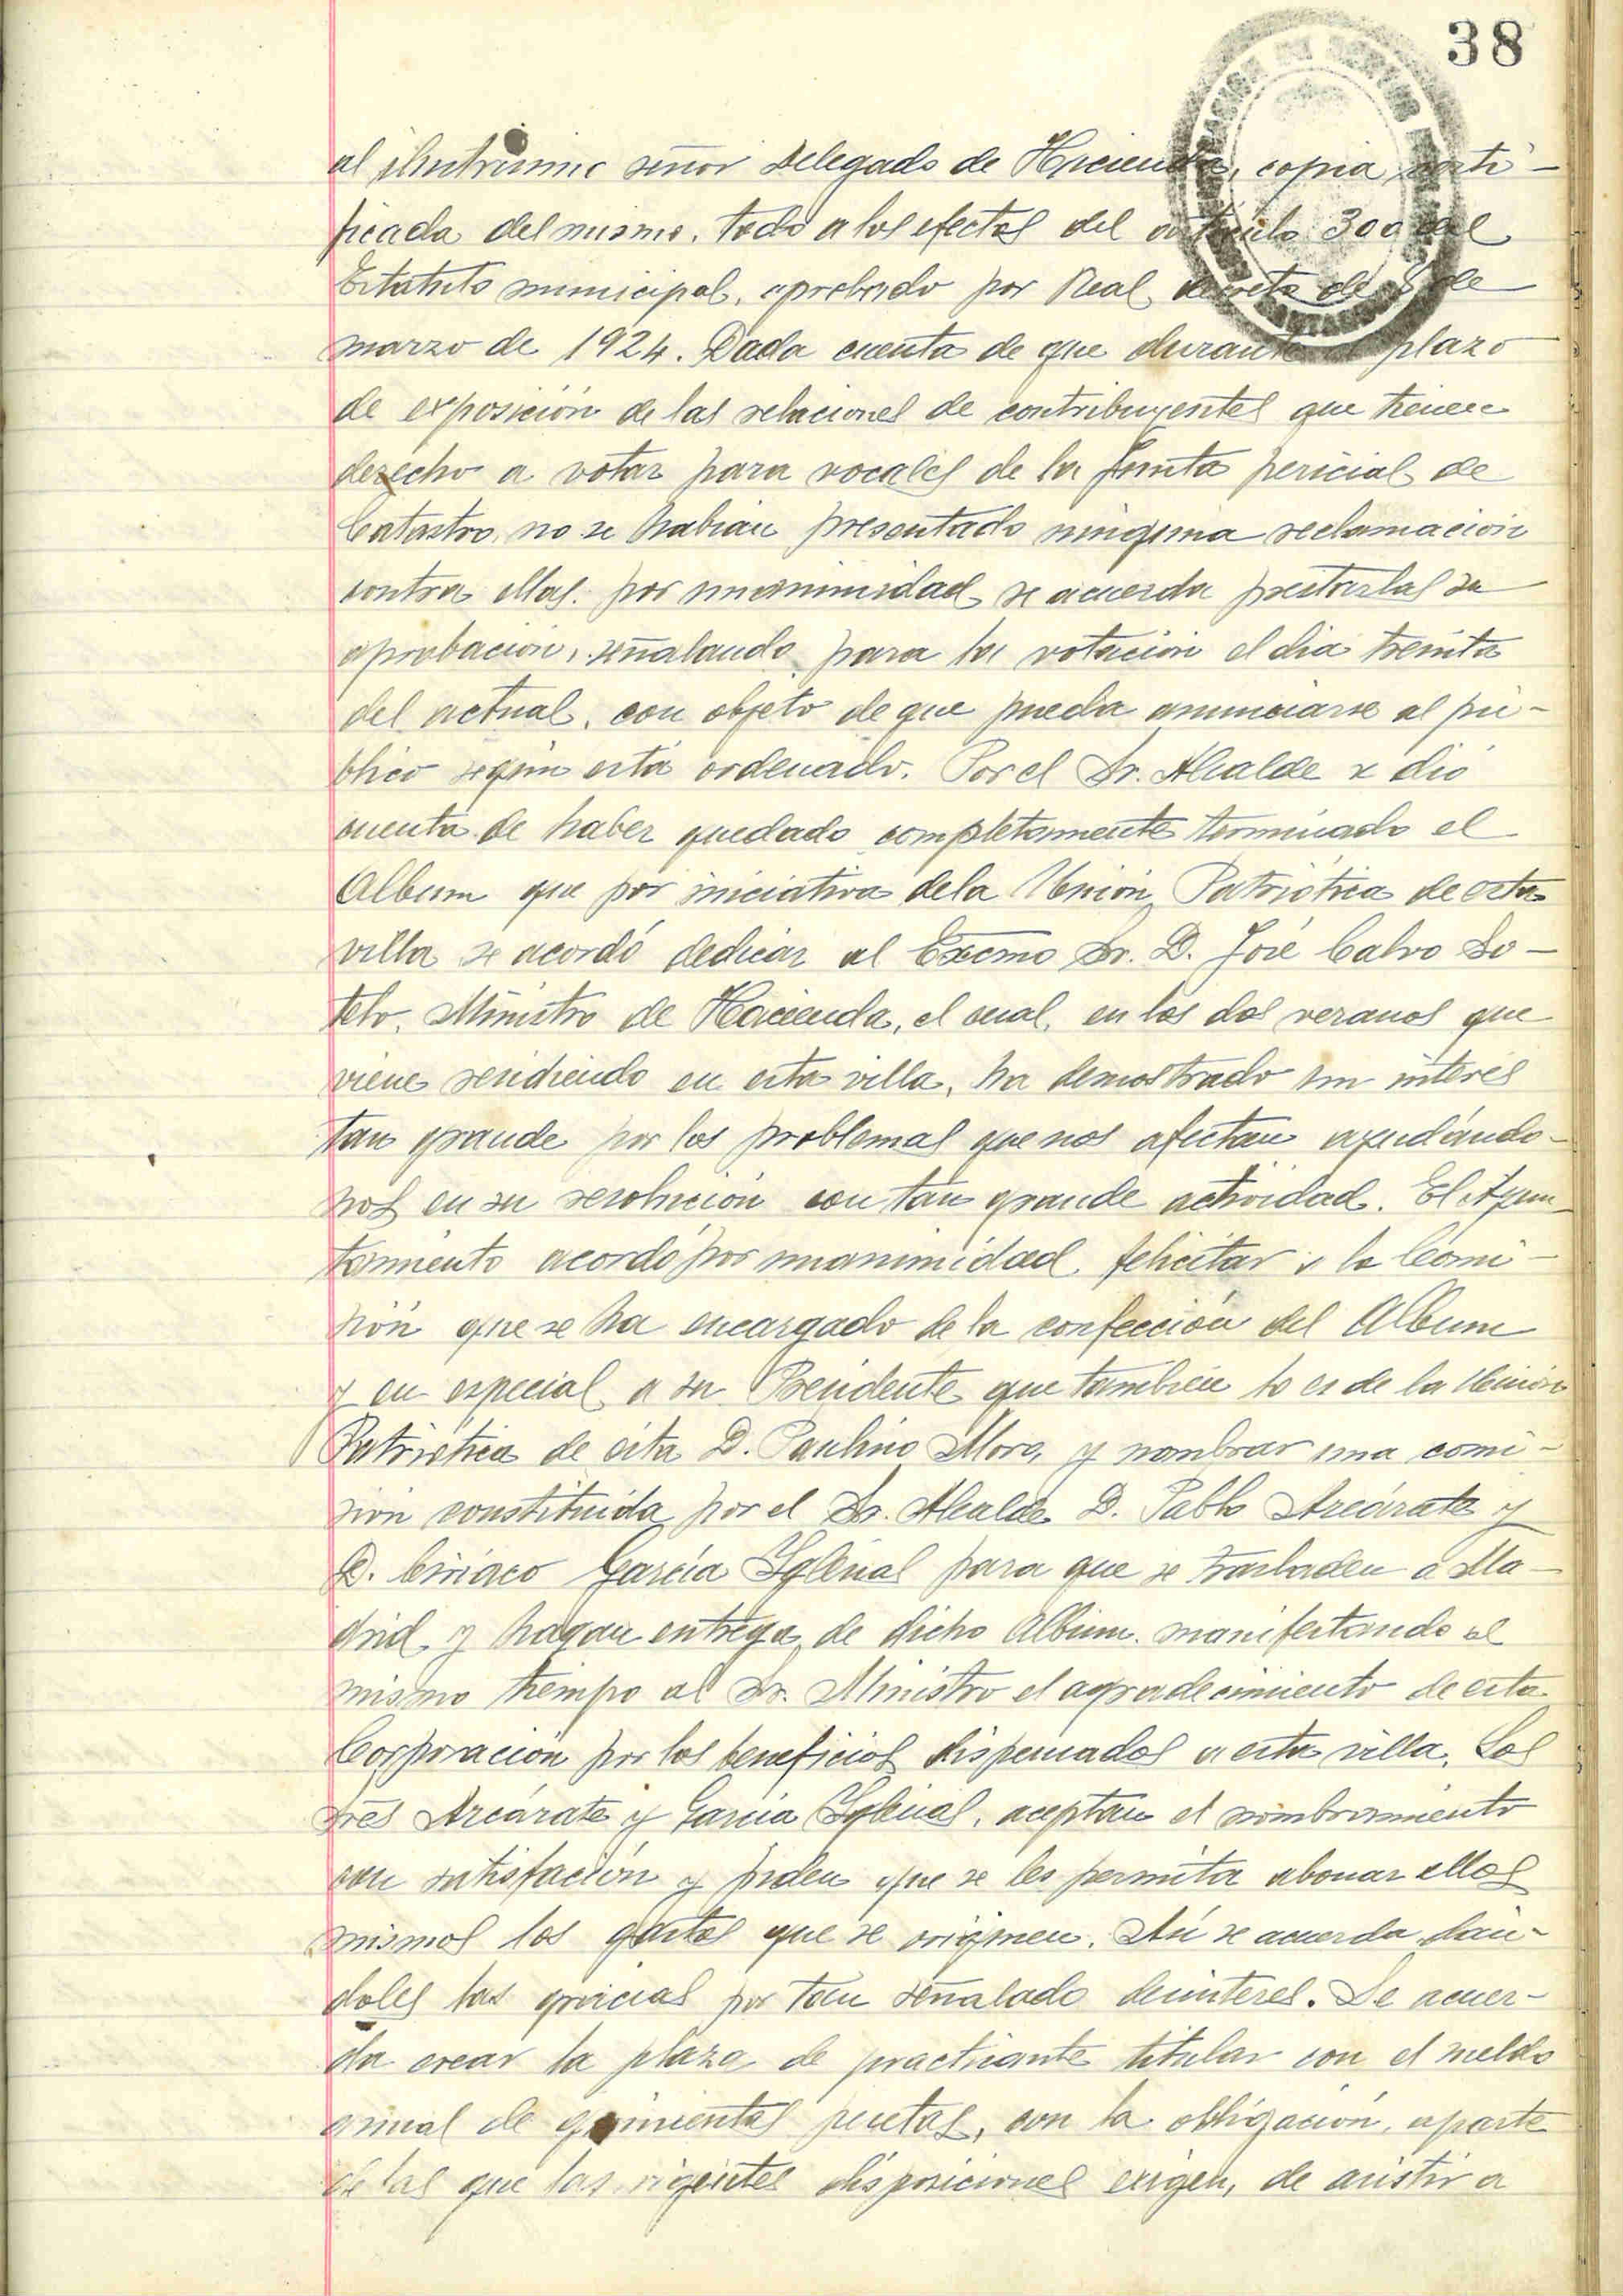 38
al ilustrísimo señor Delegado de Hacienda, copia certi-
ficada del mismo, todo a los efectos del artículo 300 del
Estatuto municipal, aprobado por Real decreto de 8 de
marzo de 1924. Dada cuenta de que durante el plazo
de exposición de las relaciones de contribuyentes que tienen
derecho a votar para vocales de la Junta pericial de
Catastro, no se habían presentado ninguna reclamación
contra ellas. por unanimidad se acuerda prestarlas su
aprobación, señalando para la votación el dia treinta
del actual, con objeto de que pueda anunciarse al pú-
blico según está ordenado. Por el Sr. Alcalde se dió
cuenta de haber quedado completamente terminado el
Album que por iniciativa de la Unión Patriótica de esta
villa se acordó dedicar al Excmo Sr. D. José Calvo So-
telo, Ministro de Hacienda, el cual, en los dos veranos que
viene residiendo en esta villa, ha demostrado un interés
tan grande por los problemas que nos afectan ayudándo-
nos en su resolución con tan grande actividad. El Ayun-
tamiento acordó por unanimidad felicitar a la Comi-
sión que se ha encargado de la confección del Album
y en especial a su Presidente que también lo es de la Unión
Patriótica de ésta D. Paulino Moro, y nombrar una comi-
sión constituída por el Sr. Alcalde D. Pablo Arcárate y
D. Ciriaco García Iglesias para que se trasladen a Ma-
drid y hagan entrega de dicho Album. manifestando al
mismo tiempo al Sr. Ministro el agradecimiento de esta
Corporación por los beneficios dispensados a esta villa. Los
Sres Arcárate y García Iglesias, aceptan el nombramiento
con satisfación y piden que se les permita abonar ellos
mismos los gastos que se originen. Así se acuerda, dán-
doles las gracias por tan señalado desinteres. Se acuer-
da crear la plaza de practicante titular con el sueldo
anual de quinientas pesetas, con la obligación, aparte
de las que las vigentes disposiciones exigen, de asistir a